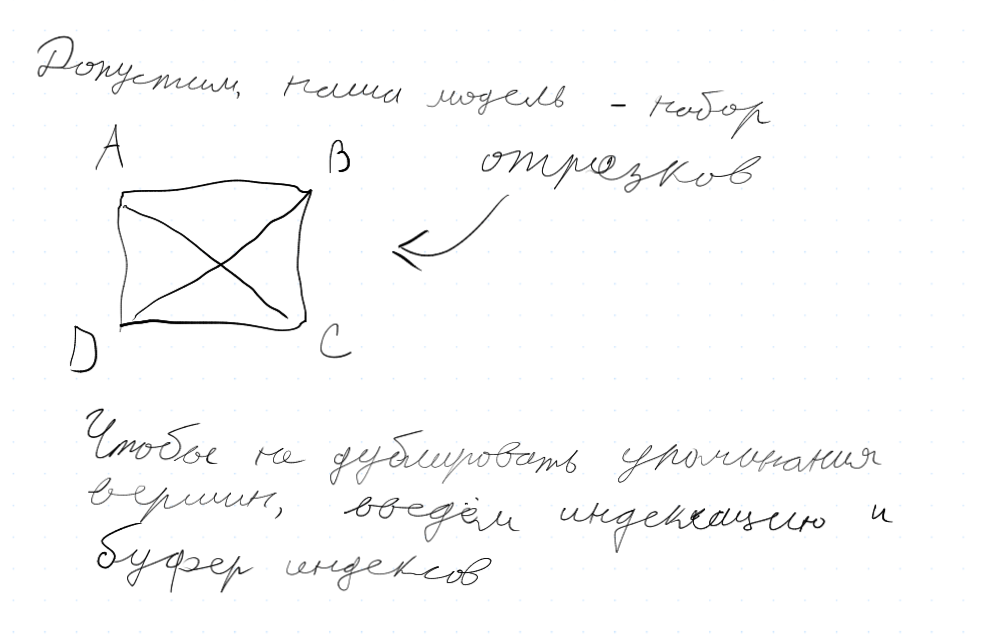 Допустим, наша модель - набор
отрезков
A B
D C
Чтобы не дублировать упоминания
вершин, введём индексацию и
буфер индексов